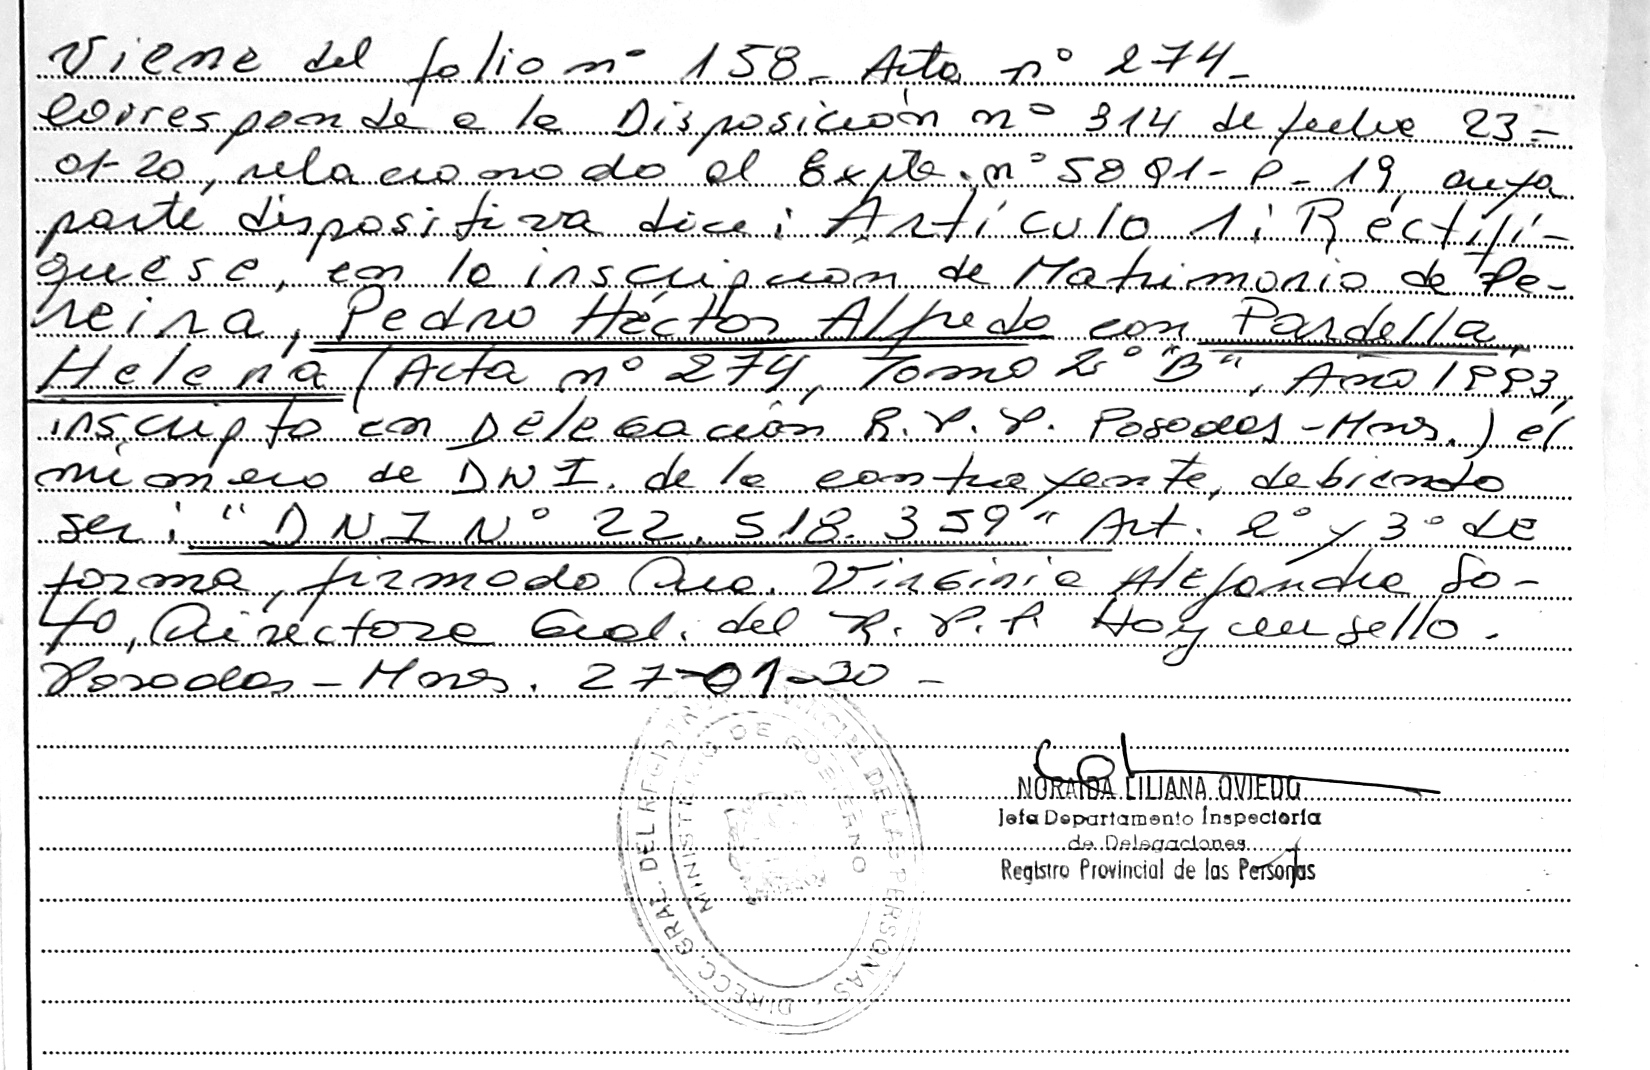 Viene del folio nº 158 - Acta nº 274 -
Corresponde a la Disposición nº 314 de fecha 23-
01-20, relacionado al Expte. nº 5891-P-19, cuya
parte dispositiva dice: Artículo 1: Rectifí-
quese, en la inscripción de Matrimonio de Pe-
reira, Pedro Héctor Alfredo con Pardella,
Helena (Acta nº 274, Tomo 2º "B", Año 1993,
inscripto en Delegación R.P.P. Posadas - Mnes.) el
número de DNI. de la contrayente, debiendo
ser: "DNI Nº 22.518.359" Art. 2º y 3º de
forma, firmado Dra. Virginia Alejandra So-
to, Directora Gral. del R.P.P. Hay un sello.
Posadas - Mnes. 27-01-20 -
DIRECC. GRAL. DEL REGISTRO PROVINCIAL DE LAS PERSONAS
MINISTERIO DE GOBIERNO
NORAIDA LILIANA OVIEDO
Jefa Departamento Inspectoría
de Delegaciones
Registro Provincial de las Personas